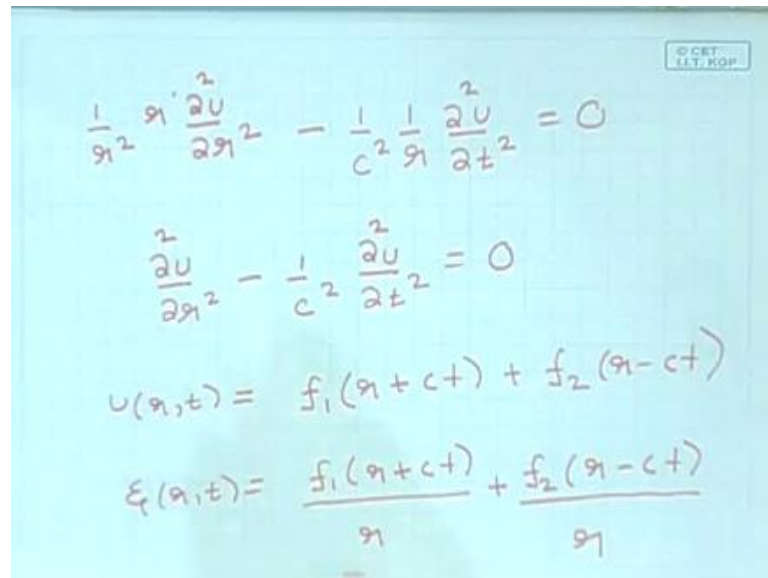 © CET
I.I.T. KGP
1/r² r ∂²u/∂r² − 1/c² 1/r ∂²u/∂t² = 0
∂²u/∂r² − 1/c² ∂²u/∂t² = 0
u(r,t) = f₁(r+ct) + f₂(r−ct)
ξ(r,t) = f₁(r+ct)/r + f₂(r−ct)/r